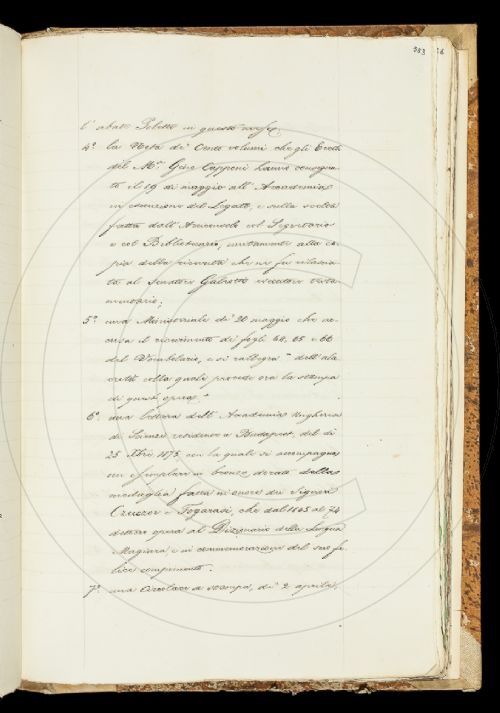 353
l'abate in questo
4.° la Nota di Cento volumi che gli Eredi
del M.se Gino Capponi hanno consegna-
ti il 19 di maggio all'Accademia
in esecuzione del Legato, e sulla scelta
fatta dall'Arciconsolo col Segretario
e col Bibliotecario, unitamente alla co-
pia della ricevuta che ne fu rilascia-
ta al Senatore Galeotti esecutore testa-
mentario;
5.° una Ministeriale di 20 maggio che ac-
cusa il ricevimento di fogli 64, 65 e 66
del Vocabolario, e si rallegra dell'ala-
crità colla quale procede ora la stampa
di quest'opera.
6.° una lettera dell'Accademia Ungherese
di Scienze residente a Budapest, del dì
25 Xbre 1875, con la quale si accompagna
un esemplare in bronzo dorato della
medaglia fatta in onore dei Signori
Czuczor e Fogarasi, che dal 1845 al 74
dettero opera al Dizionario della Lingua
Magiara e in commemorazione del suo fe-
lice compimento.
7.° una Circolare a stampa, di 2 aprile,